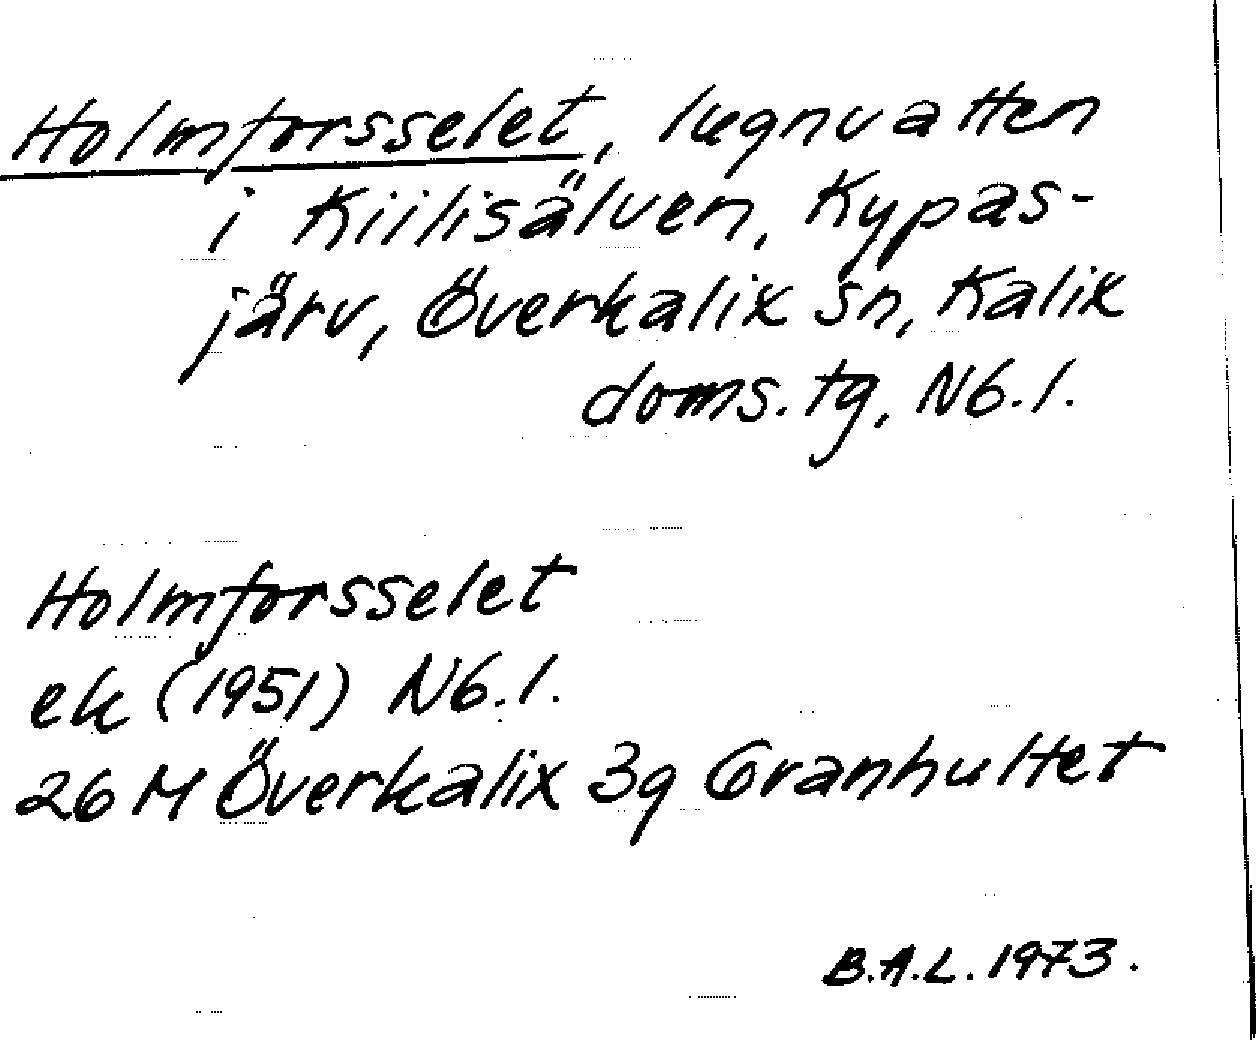 Holmforsselet, lugnvatten
i Kiilisälven, Kypas-
järv, Överkalix sn, Kalix
doms. tg, N6.1.
Holmforsselet
ek (1951) N6.1.
26 M Överkalix 3g Granhultet
B.A.L. 1973.